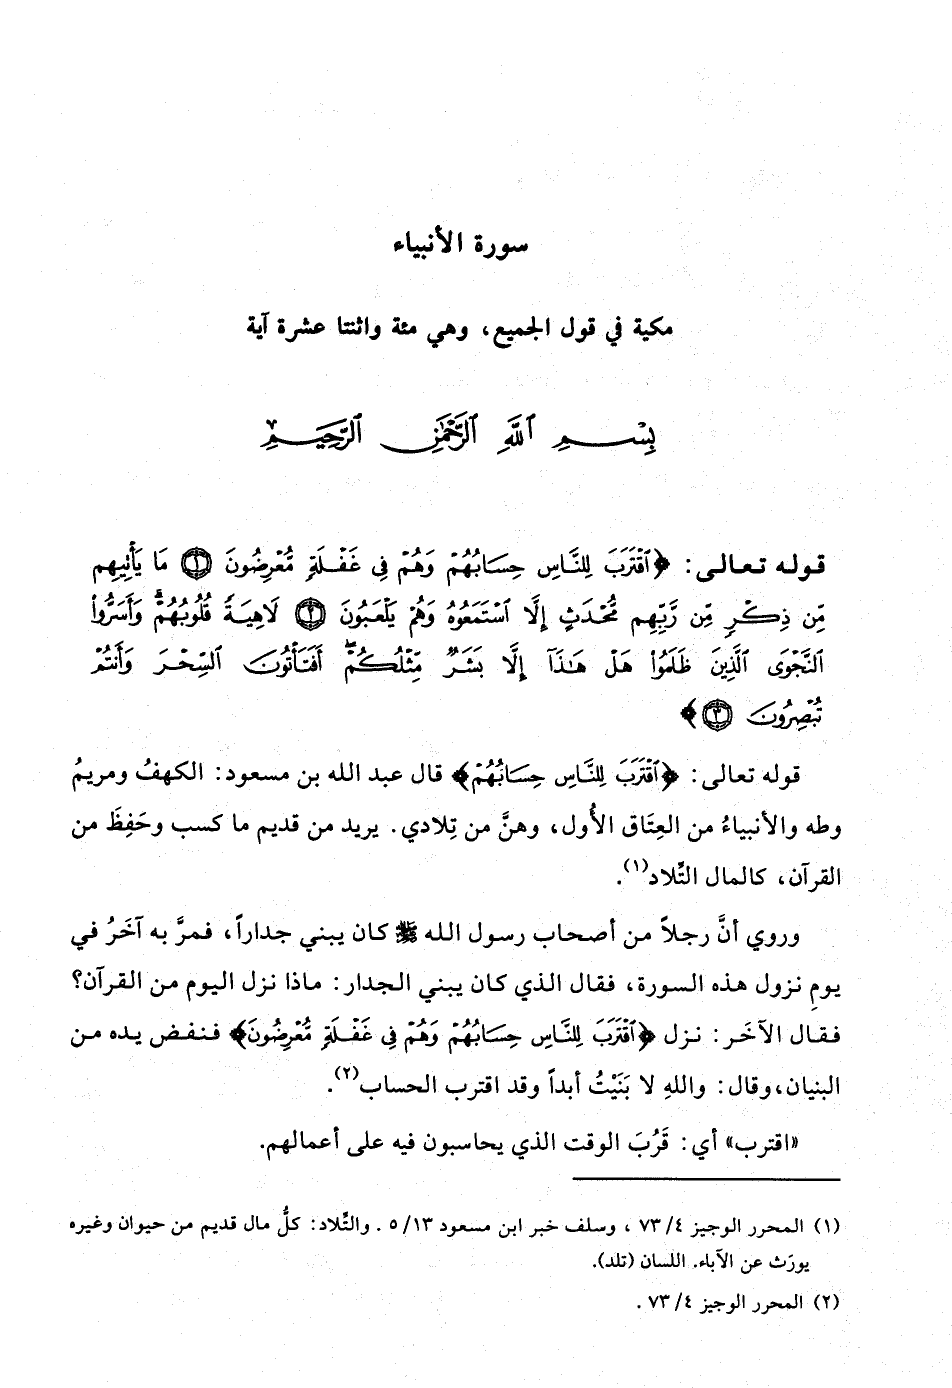 سورة الأنبياء
مكية في قول الجميع، وهي مئة واثنتا عشرة آية
بِسْمِ ٱللَّهِ ٱلرَّحْمَٰنِ ٱلرَّحِيمِ
قوله تعالى: ﴿ٱقْتَرَبَ لِلنَّاسِ حِسَابُهُمْ وَهُمْ فِى غَفْلَةٍ مُّعْرِضُونَ ۝١ مَا يَأْتِيهِم
مِّن ذِكْرٍ مِّن رَّبِّهِم مُّحْدَثٍ إِلَّا ٱسْتَمَعُوهُ وَهُمْ يَلْعَبُونَ ۝٢ لَاهِيَةً قُلُوبُهُمْ ۗ وَأَسَرُّوا۟
ٱلنَّجْوَى ٱلَّذِينَ ظَلَمُوا۟ هَلْ هَٰذَآ إِلَّا بَشَرٌ مِّثْلُكُمْ ۖ أَفَتَأْتُونَ ٱلسِّحْرَ وَأَنتُمْ
تُبْصِرُونَ ۝٣﴾
قوله تعالى: ﴿ٱقْتَرَبَ لِلنَّاسِ حِسَابُهُمْ﴾ قال عبد الله بن مسعود: الكهفُ ومريمُ
وطه والأنبياءُ من العِتَاق الأُول، وهنَّ من تِلادي. يريد من قديم ما كسب وحَفِظَ من
القرآن، كالمال التِّلاد(١).
وروي أنَّ رجلاً من أصحاب رسول الله ﷺ كان يبني جداراً، فمرَّ به آخَرُ في
يومِ نزول هذه السورة، فقال الذي كان يبني الجدار: ماذا نزل اليوم من القرآن؟
فقال الآخَر: نزل ﴿ٱقْتَرَبَ لِلنَّاسِ حِسَابُهُمْ وَهُمْ فِى غَفْلَةٍ مُّعْرِضُونَ﴾ فنفض يده من
البنيان، وقال: واللهِ لا بَنَيْتُ أبداً وقد اقترب الحساب(٢).
«اقترب» أي: قَرُبَ الوقت الذي يحاسبون فيه على أعمالهم.
(١) المحرر الوجيز ٤/ ٧٣ ، وسلف خبر ابن مسعود ١٣/ ٥ . والتِّلاد: كلُّ مال قديم من حيوان وغيره
يورَث عن الآباء. اللسان (تلد).
(٢) المحرر الوجيز ٤/ ٧٣ .